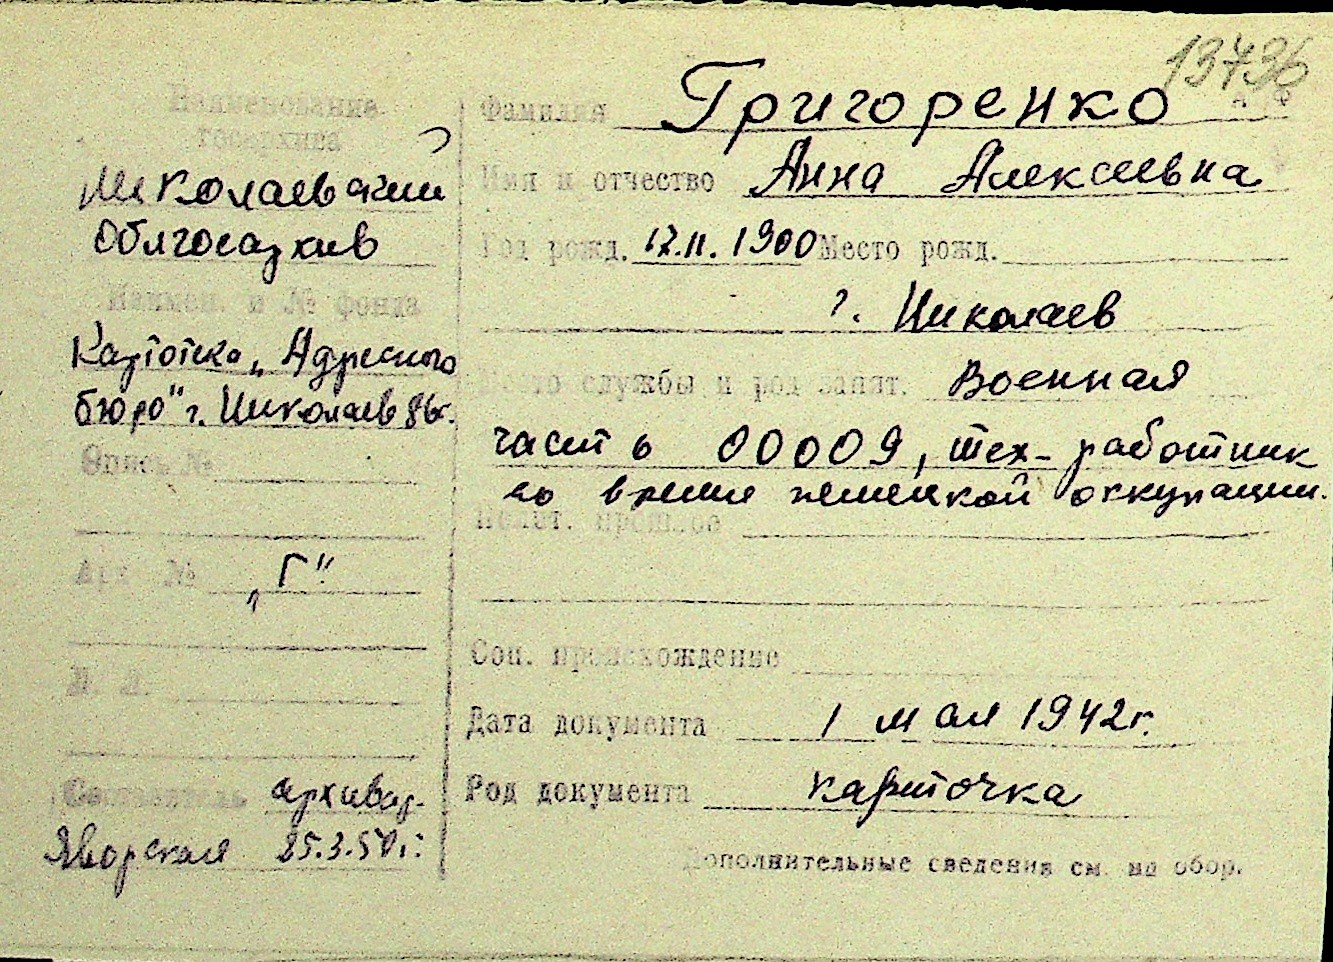 13736
Наименование
госархива
Николаевский
Облгосархив
Наимен. и № фонда
Картотека „Адресного
бюро" г. Николаев
Опись №
Арх. №
„Г"
Составитель архивар.
Яворская 25.3.50 г.
Фамилия Григоренко
Имя и отчество Анна Алексеевна
Год рожд. 17.11.1900 Место рожд.
г. Николаев
Место службы и род занят. Военная
часть 00009, тех-работник
во время немецкой оккупации.
Полит. прошлое
Соц. происхождение
Дата документа 1 мая 1942 г.
Род документа карточка
Дополнительные сведения см. на обор.